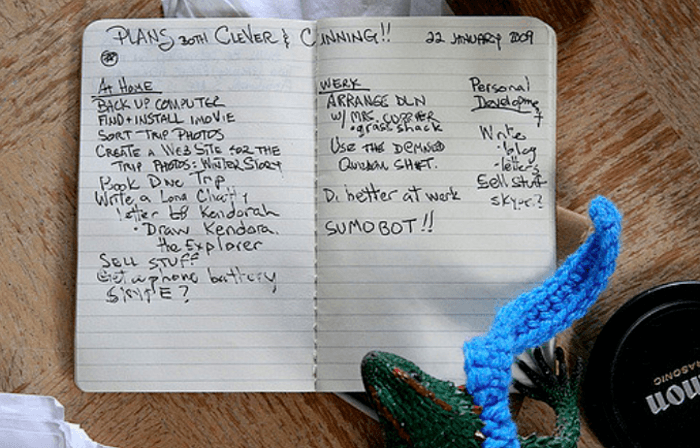 PLANS BOTH CLEVER & CUNNING!! 22 JANUARY 2009
AT HOME
BACK UP COMPUTER
FIND + INSTALL IMOVIE
SORT TRIP PHOTOS
CREATE A WEB SITE FOR THE
TRIP PHOTOS: WINTER STORY
Book Dive Trip
Write a Long Chatty
letter to Kendorah
• Draw Kendora
the Explorer
SELL STUFF
Get a phone battery
SIMPLE?
WERK
ARRANGE DLN
w/ MRS.
• grass shack
USE THE DEMNED
SHIFT.
Do better at work
SUMOBOT!!
Personal
Development
Write
• blog
• letters
Sell stuff
skype?
non
RASONIC